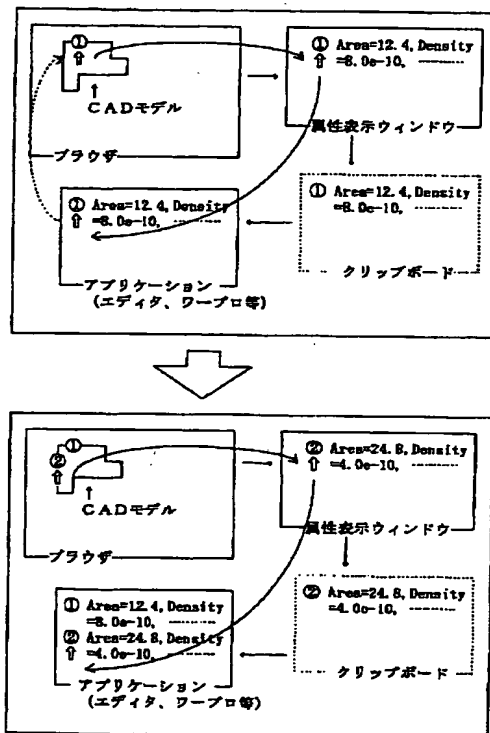 ①
⇧
↑
CADモデル
ブラウザ
① Area=12.4, Density
⇧ =8.0e-10, ┈┈┈
属性表示ウィンドウ
① Area=12.4, Density
=8.0e-10, ┈┈┈
クリップボード
① Area=12.4, Density
⇧ =8.0e-10, ┈┈┈
アプリケーション
(エディタ、ワープロ等)
①
②
⇧
↑
CADモデル
ブラウザ
② Area=24.8, Density
⇧ =4.0e-10, ┈┈┈
属性表示ウィンドウ
② Area=24.8, Density
=4.0e-10, ┈┈┈
クリップボード
① Area=12.4, Density
=8.0e-10, ┈┈┈
② Area=24.8, Density
⇧ =4.0e-10, ┈┈┈
アプリケーション
(エディタ、ワープロ等)